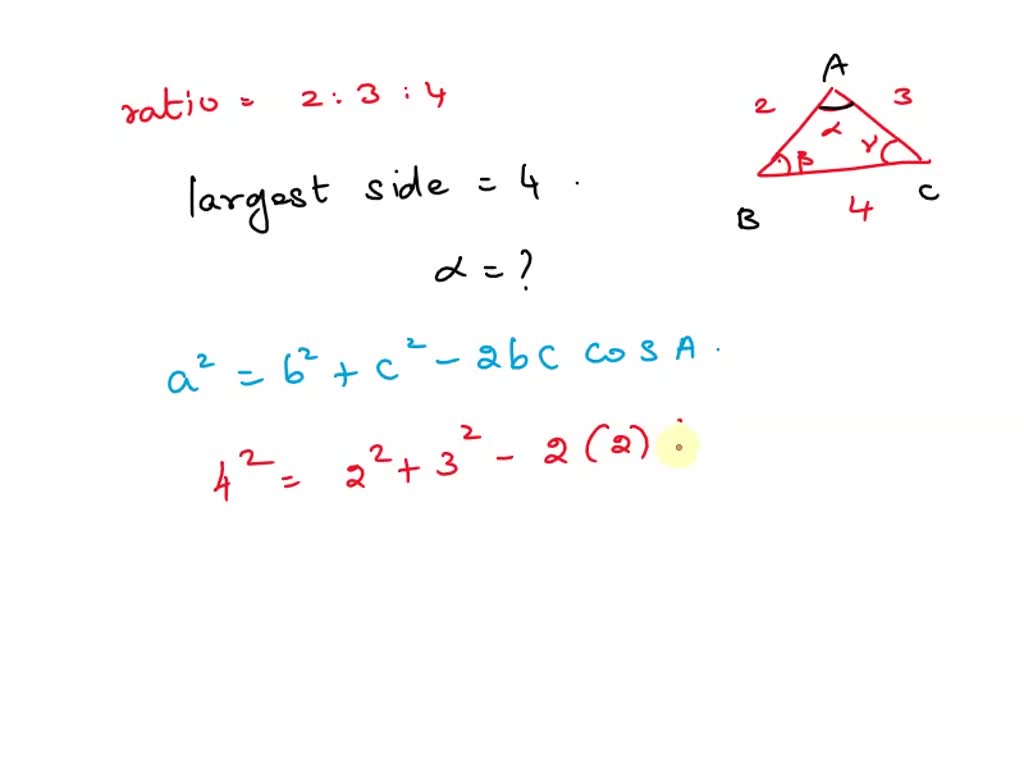 ratio = 2 : 3 : 4
largest side = 4 .
α = ?
a² = b² + c² - 2bc cos A .
4² = 2² + 3² - 2 (2)
A
2
3
α
β
γ
B
4
C